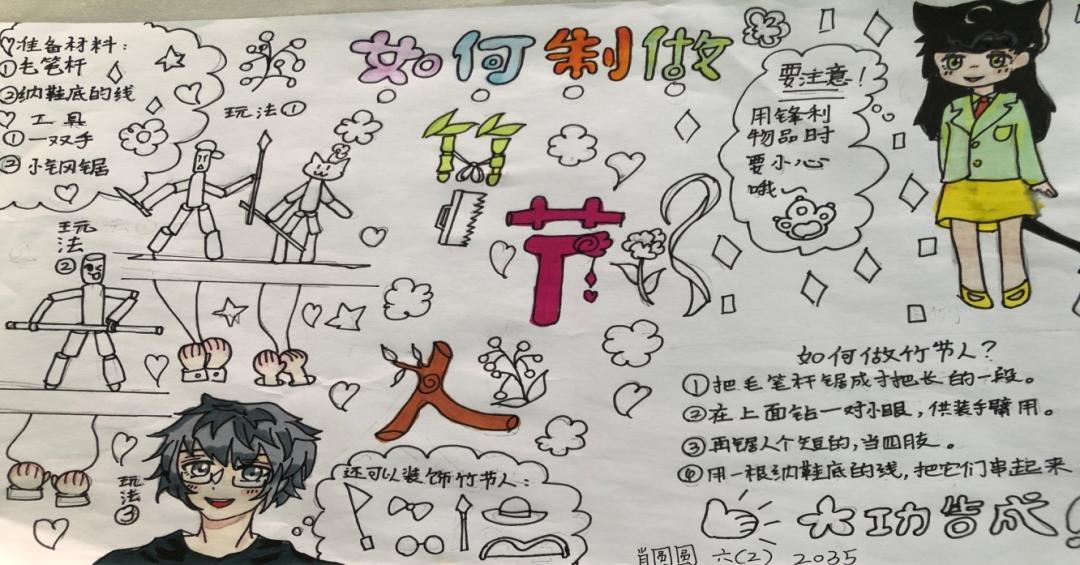 如何制做
竹节人
准备材料：
①毛笔杆
②纳鞋底的线
工具
①一双手
②小钢锯
玩法①
玩法
②
玩法③
要注意！
用锋利
物品时
要小心
哦~
还可以装饰竹节人：
如何做竹节人？
①把毛笔杆锯成寸把长的一段。
②在上面钻一对小眼，供装手臂用。
③再锯八个短的，当四肢。
④用一根纳鞋底的线，把它们串起来
大功告成
肖圆圆 六(2) 2035